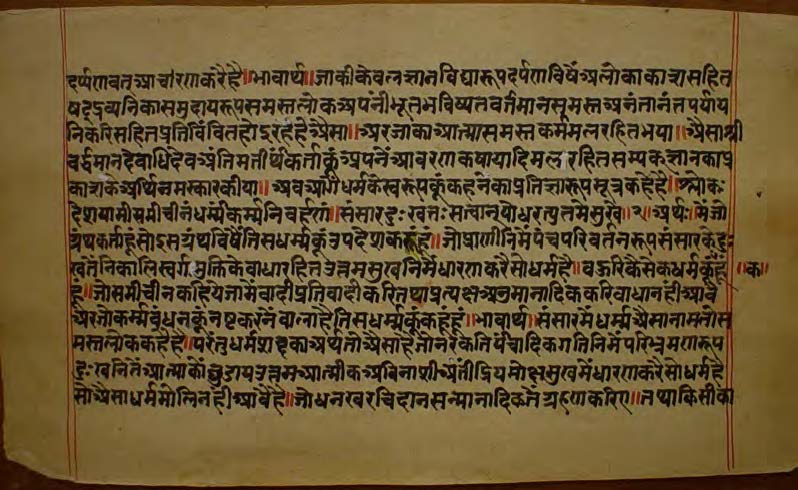 दर्प्पणवत आचरण करै है॥ भावार्थ॥ जाकी केवलज्ञान विद्यारूप दर्पण विषैं अलोकाकाश सहित
षट्द्रव्यनिका समुदायरूप समस्त लोक अपनी भूत भविष्यत वर्तमान समस्त अनंतानंत पर्याय
निकरि सहित प्रतिबिंबित होइ रहे है ऐसा॥ अर जाका आत्मा समस्त कर्ममल रहित भया॥ ऐसा श्री
वर्द्धमान देवाधिदेव अंतिम तीर्थकर्ता कूं अपनें आवरण कषायादि मल रहित सम्यक ज्ञान का प्र
काशकै अर्थि नमस्कार कीया॥ अब आगै धर्म के स्वरूप कूं कहने का प्रतिज्ञारूप सूत्र कहै है॥ श्लोकः
देशयामि समीचीनं धर्म्मं कर्म्मनिवर्हणं॥ संसारदुःखतः सत्वान्योधरत्युत्तमे सुखे॥२॥ अर्थः॥ मैं जो
ग्रंथकर्ता हूं सो इस ग्रंथ विषैं तिस धर्म्म कूं उपदेशक हूं हूं॥ जो प्राणीनि मैं पंचपरिवर्तन रूप संसार के दुः
खतें निकालि स्वर्ग मुक्ति के बाधा रहित उत्तम सुखनि मैं धारण करै सो धर्म है॥ बहुरि कैसेक धर्म कूं कहूं ॥क॥
हूं॥ जो समीचीन कहिये जामें वादी प्रतिवादी करि तथा प्रत्यक्ष अनुमानादिक करि बाधा नंही आवै
अर जो कर्म्मबंधन कूं नष्ट करनें वाला है तिस धर्म्म कूं कहूं हूं॥ भावार्थ॥ संसार मैं धर्म्म ऐसा नाम तो स
मस्त लोक कहै है॥ परंतु धर्म शब्द का अर्थ तो ऐसा है जो नरक तिर्यंचादिक गतिनि मैं परिभ्रमण रूप
दुःखनितैं आत्मा कों छुडाय उत्तम आत्मीक अविनाशी अतींद्रिय मोक्ष सुख मैं धारण करै सो धर्म है
सो ऐसा धर्म मोलि नही आवै है॥ जो धन खरचि दान सन्मानादिक तैं ग्रहण करिए॥ तथा किसी का